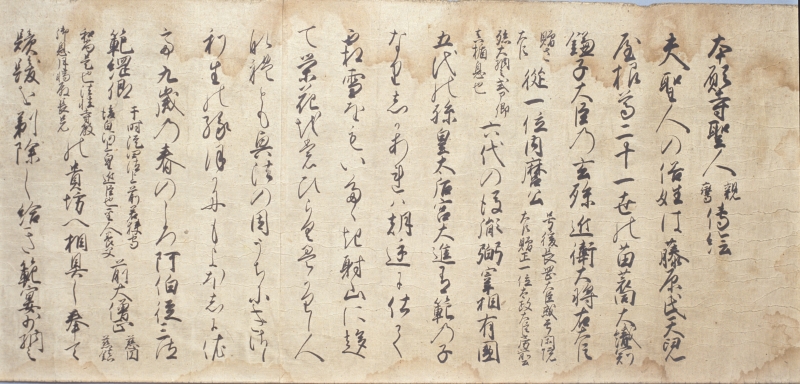 本願寺聖人親鸞傳絵
夫聖人の俗姓は藤原氏天児
屋根尊二十一世の苗裔大織冠
鎌子大臣の玄孫近衛大将右大臣
贈左大臣従一位内麿公号後長岡大臣或号閑院大臣贈正一位太政大臣房前
孫大納言式部卿真楯息也六代の後胤弼宰相有国
五代の孫皇太后宮大進有範の子
なりしかあれは朝廷に仕て
霜雪をもいたゝき射山に趨
て栄花をもひらくへかりし人
なれとも興法の因うちにきさし
利生の縁ほかにもよほしゝに依
て九歳の春のころ阿伯従三位
範綱卿于時従四位上前若狭守後白河上皇近臣也聖人養父前大僧正慈円慈鎮
和尚是也法性寺殿御息月輪殿長兄の貴坊へ相具し奉て
鬢髪を剃除し給き範宴少納言